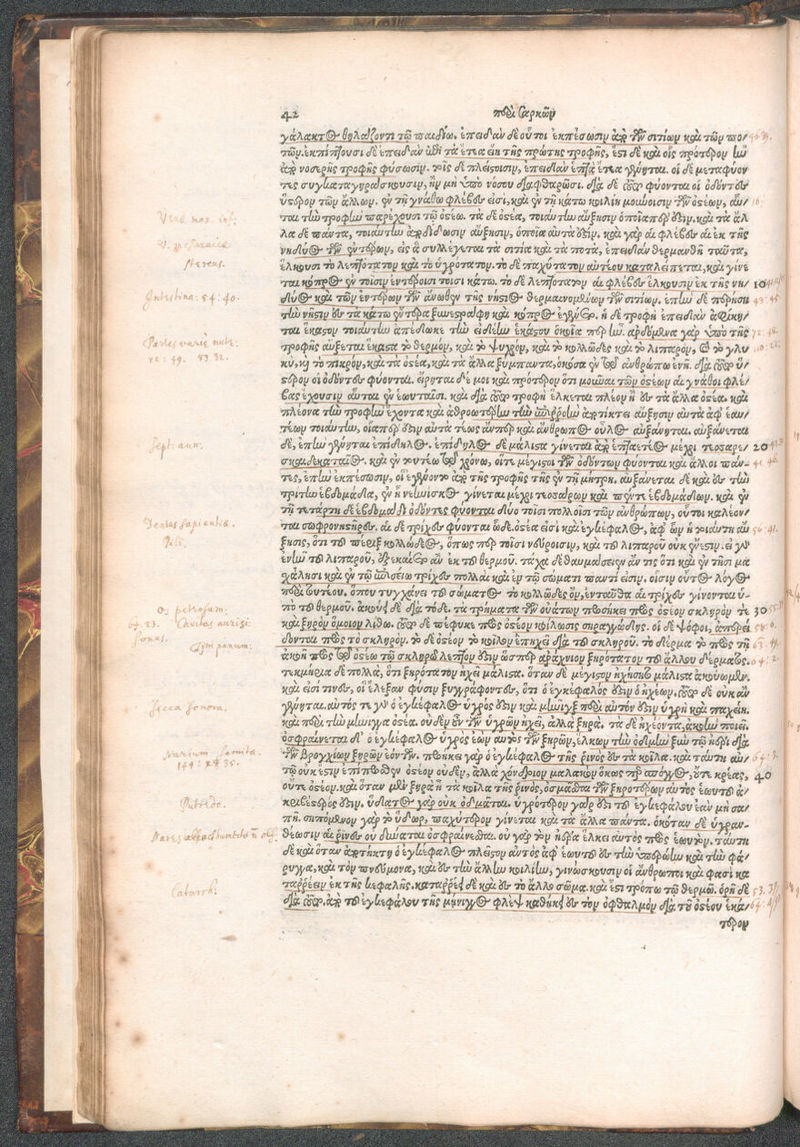 42 περὶ σαρκῶν
γάλακτος θηλάζοντι τῷ παιδίῳ. ἐπειδὰν δὲ οὗτοι ἐκπέσωσιν ἀπὸ τῶν σιτίων καὶ τῶν πο/
τῶν. ἐκπίπτουσι δὲ ἐπειδὰν ἑπτὰ ἔτεα εἴη τῆς πρώτης τροφῆς, ἔστι δὲ καὶ οἷς πρότερον ἢν
ἀπὸ νοσερῆς τροφῆς φύσωσιν. τοῖς δὲ πλείστοισιν, ἐπειδὰν ἑπτὰ ἔτεα γένηται. οἱ δὲ μεταφύον
τες συγκαταγηράσκουσιν, ἢν μὴ ὑπὸ νόσου διαφθαρῶσι. διὰ δὲ τόδε φύονται οἱ ὀδόντες
ὕστερον τῶν ἄλλων. ἐν τῇ γνάθῳ φλέβες εἰσὶ, καὶ ἐν τῇ κάτω κοιλίῃ μούνοισιν τῶν ὀστέων, αὗ/
ται τὴν τροφὴν παρέχουσι τῷ ὀστέῳ. τὰ δὲ ὀστέα, τοιαύτην αὔξησιν ὁποῖαπέρ ἐστιν. καὶ τὰ ἄλ
λα δὲ πάντα, τοιαύτην ἀποδίδωσιν αὔξησιν, ὁποῖα αὐτά ἐστιν. καὶ γὰρ αἱ φλέβες αἱ ἐκ τῆς
νηδύος τῶν ἐντέρων, εἰς ἃ συλλέγεται τὰ σιτία καὶ τὰ ποτὰ, ἐπειδὰν θερμανθῇ ταῦτα,
ἕλκουσι τὸ λεπτότατον καὶ τὸ ὑγρότατον. τὸ δὲ παχύτατον αὐτέου καταλείπεται, καὶ γίνε
ται κόπρος ἐν τοῖσιν ἐντέροισι τοῖσι κάτω. τὸ δὲ λεπτότατον αἱ φλέβες ἕλκουσιν ἐκ τῆς νη/ 10
δύος καὶ τῶν ἐντέρων τῶν ἄνωθεν τῆς νήστιος θερμαινομένων τῶν σιτίων. ἐπὴν δὲ περήσῃ
τὴν νῆστιν ἐς τὰ κάτω ἔντερα ξυνεστράφη καὶ κόπρος ἐγένετο. ἡ δὲ τροφὴ ἐπειδὰν ἀφίκη/
ται ἕκαστον τοιαύτην ἀπέδωκε τὴν εἰδέην ἑκάστου ὁκοῖα πὲρ ἦν. ἀρδόμενα γὰρ ὑπὸ τῆς
τροφῆς αὔξεται ἕκαστα τὸ θερμὸν, καὶ τὸ ψυχρὸν, καὶ τὸ κολλῶδες καὶ τὸ λιπαρὸν, καὶ τὸ γλυ
κὺ, καὶ τὸ πικρὸν, καὶ τὰ ὀστέα, καὶ τὰ ἄλλα ξύμπαντα, ὁκόσα ἐν τῷ ἀνθρώπῳ ἔνι. διὰ τόδε ὕ/
στερον οἱ ὀδόντες φύονται. εἴρηται δέ μοι καὶ πρότερον ὅτι μοῦναι τῶν ὀστέων αἱ γνάθοι φλέ/
βας ἔχουσιν αὗται ἐν ἑωυταῖσι. καὶ διὰ τόδε τροφὴ ἕλκεται πλέον ἢ ἐς τὰ ἄλλα ὀστέα. καὶ
πλέονα τὴν τροφὴν ἔχοντα καὶ ἀθροωτέρην τὴν ἐπιῤῥοὴν ἀποτίκτει αὔξησιν αὐτὰ ἀφ' ἑαυ/
τέων τοιαύτην, οἷάπερ ἐστιν αὐτὰ τέως ἄνπερ καὶ ἄνθρωπος οὖλος αὐξάνηται. αὐξάνεται
δὲ, ἐπὴν γένηται ἐπίδηλος. ἐπίδηλος δὲ μάλιστα γίνεται ἀπὸ ἑπταέτεος μέχρι τεσσαρε/ 20
σκαιδεκαταῖος. καὶ ἐν τουτέῳ τῷ χρόνῳ, οἵτε μέγιστοι τῶν ὀδόντων φύονται καὶ ἄλλοι πάν/
τες, ἐπὴν ἐκπέσωσιν, οἳ ἐγένοντο ἀπὸ τῆς τροφῆς τῆς ἐν τῇ μήτρῃ. αὐξάνεται δὲ καὶ ἐς τὴν
τρίτην ἑβδομάδα, ἐν ᾗ νεηνίσκος γίνεται μέχρι τεσσάρων καὶ πέντε ἑβδομάδων. καὶ ἐν
τῇ τετάρτῃ δὲ ἑβδομάδι ὀδόντες φύονται δύο τοῖσι πολλοῖσι τῶν ἀνθρώπων, οὗτοι καλέον/
ται σωφρονιστῆρες. αἱ δὲ τρίχες φύονται ὧδε. ὀστέα εἰσὶ καὶ ἐγκέφαλος, ἀφ' ὧν ἡ τοιαύτη αὔ
ξησις, ὅτι τὸ πέριξ κολλῶδες, ὅπως πὲρ τοῖσι νεύροισιν, καὶ τοῦ λιπαροῦ οὐκ ἔνεστιν. εἰ γὰρ
ἐνῆν τοῦ λιπαροῦ, οὐκ ἐκαίετο ἂν ἐκ τοῦ θερμοῦ. τάχα δὲ θαυμάσειεν ἄν τις ὅτι καὶ ἐν τῇσι μα
χάλῃσι καὶ ἐν τῷ ἐπισείῳ τρίχες πολλαὶ καὶ ἐν τῷ σώματι παντί εἰσιν. οἷσιν οὗτος λόγος
περὶ τουτέου. ὅπου τυγχάνει τοῦ σώματος τὸ κολλῶδες ὂν, ἐνταῦθα αἱ τρίχες γίνονται ὑ/
πὸ τοῦ θερμοῦ. ἀκούει δὲ διὰ τόδε. τὰ τρήματα τῶν οὐάτων προσήκει πρὸς ὀστέον σκληρόν τε 30
καὶ ξηρὸν ὅμοιον λίθῳ. τόδε δὲ πέφυκε πρὸς ὀστέον κοίλωσις σηραγγώδης. οἱ δὲ ψόφοι, ἀπερεί
δονται πρὸς τὸ σκληρόν. τὸ δὲ ὀστέον τὸ κοῖλον ἐπηχεῖ διὰ τοῦ σκληροῦ. τὸ δέρμα τὸ πρὸς τῇ
ἀκοῇ πρὸς τῷ ὀστέῳ τῷ σκληρῷ λεπτόν ἐστιν ὥσπερ ἀράχνιον ξηρότατον τοῦ ἄλλου δέρματος.
τεκμήρια δὲ πολλὰ, ὅτι ξηρότατον ἠχεῖ μάλιστα. ὅταν δὲ μέγιστον ἠχήσῃ μάλιστα ἀκούωμεν.
καὶ εἰσί τινες, οἳ ἔλεξαν φύσιν ξυγγράφοντες, ὅτι ὁ ἐγκέφαλός ἐστιν ὁ ἠχέων. τόδε δὲ οὐκ ἂν
γένηται. αὐτός τε γὰρ ὁ ἐγκέφαλος ὑγρός ἐστιν καὶ μῆνιγξ περὶ αὐτόν ἐστιν ὑγρὴ καὶ παχείη.
καὶ περὶ τὴν μήνιγγα ὀστέα. οὐδὲν οὖν τῶν ὑγρῶν ἠχεῖ, ἀλλὰ ξηρά. τὰ δὲ ἠχέοντα, ἀκοὴν ποιεῖ.
ὀσφραίνεται δ' ὁ ἐγκέφαλος ὑγρὸς ἐὼν αὐτὸς τῶν ξηρῶν, ἕλκων τὴν ὀδμὴν ξὺν τῷ ἠέρι διὰ
τῶν βρογχίων ξηρῶν ἐόντων. προσήκει γὰρ ὁ ἐγκέφαλος τῆς ῥινὸς ἐς τὰ κοῖλα. καὶ ταύτῃ αὐ/
τῷ οὐκ ἔστιν ἐπίπροσθεν ὀστέον οὐδὲν, ἀλλὰ χόνδριον μαλακὸν ὅκως περ σπόγγος, οὔτε κρέας, 40
οὔτε ὀστέον. καὶ ὅταν μὲν ξηρὰ ᾖ τὰ κοῖλα τῆς ῥινὸς, ὀσμᾶται τῶν ξηροτέρων αὐτὸς ἑωυτοῦ ἀ/
κριβέστερός ἐστιν. ὕδατος γὰρ οὐκ ὀδμᾶται. ὑγρότερον γάρ ἐστι τοῦ ἐγκεφάλου ἐὰν μὴ σα/
πῇ. σηπόμενον γὰρ τὸ ὕδωρ, παχύτερον γίνεται καὶ τὰ ἄλλα πάντα. ὁκόταν δὲ ὑγραν/
θέωσιν αἱ ῥῖνες οὐ δύναται ὀσφραίνεσθαι. οὐ γὰρ τὸν ἠέρα ἕλκει αὐτὸς πρὸς ἑωυτόν. ταύτῃ
δὲ καὶ ὅταν ἀποτήκῃ ὁ ἐγκέφαλος πλεῖστον αὐτὸς ἀφ' ἑωυτοῦ ἐς τὴν ὑπερῴην καὶ τὴν φά/
ρυγγα, καὶ τὸν πνεύμονα, καὶ ἐς τὴν ἄλλην κοιλίην, γινώσκουσιν οἱ ἄνθρωποι καὶ φασὶ κα
ταῤῥέειν ἐκ τῆς κεφαλῆς. καταῤῥεῖ δὲ καὶ ἐς τὸ ἄλλο σῶμα. καὶ ἔστι τρόπῳ τῷ θερμῷ. ὁρῇ δὲ
διὰ τόδε. ἀπὸ τοῦ ἐγκεφάλου τῆς μήνιγγος φλὲψ καθήκει ἐς τὸν ὀφθαλμὸν διὰ τοῦ ὀστέου ἑκά/
τερον
Intestina: 54: 40.
Sept. ann.
Dentes sapientiæ.
Pili.
Os petrosum:
Tympanum:
Sicca sonora.
Putredo.
Catarrh: